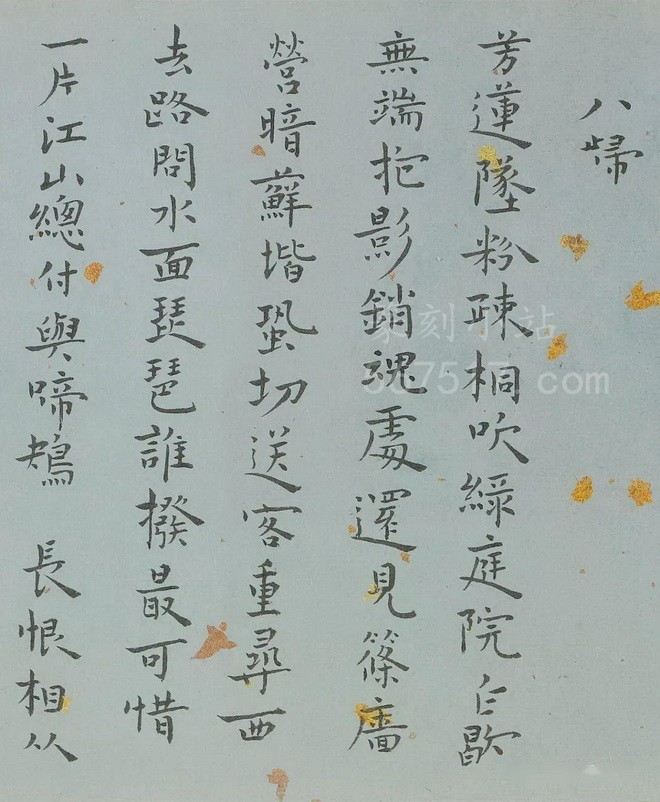 八歸
芳蓮墜粉疎桐吹綠庭院乍歇
無端抱影銷魂處還見篠牆
營暗蘚堦蛩切送客重尋西
去路問水面琵琶誰撥最可惜
一片江山總付與啼鴂 長恨相从
篆刻小站